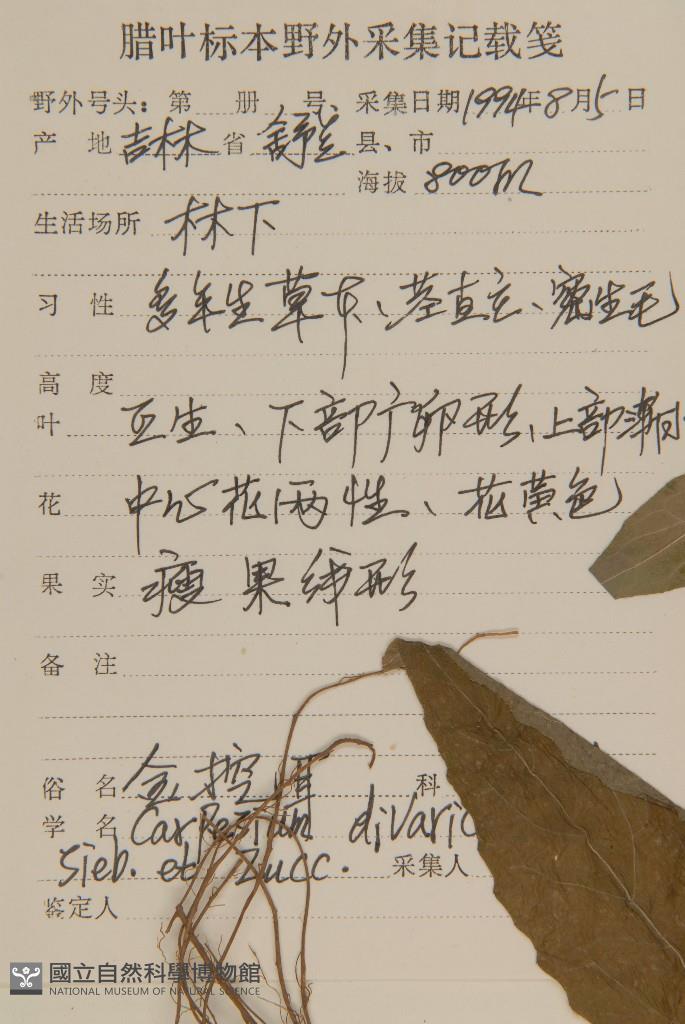 腊叶标本野外采集记载笺
野外号头：第 册 号 采集日期1994年8月5日
产 地 吉林 省 舒兰 县、市
海拔 800m
生活场所 林下
习 性 多年生草本、茎直立、密生毛
高 度
叶 互生、下部广卵形、上部渐
花 中心花两性、花黄色
果 实 瘦果线形
备 注
俗 名 金挖耳 科
学 名 Carpesium divaric
Sieb. et Zucc. 采集人
鉴定人
國立自然科學博物館
NATIONAL MUSEUM OF NATURAL SCIENCE